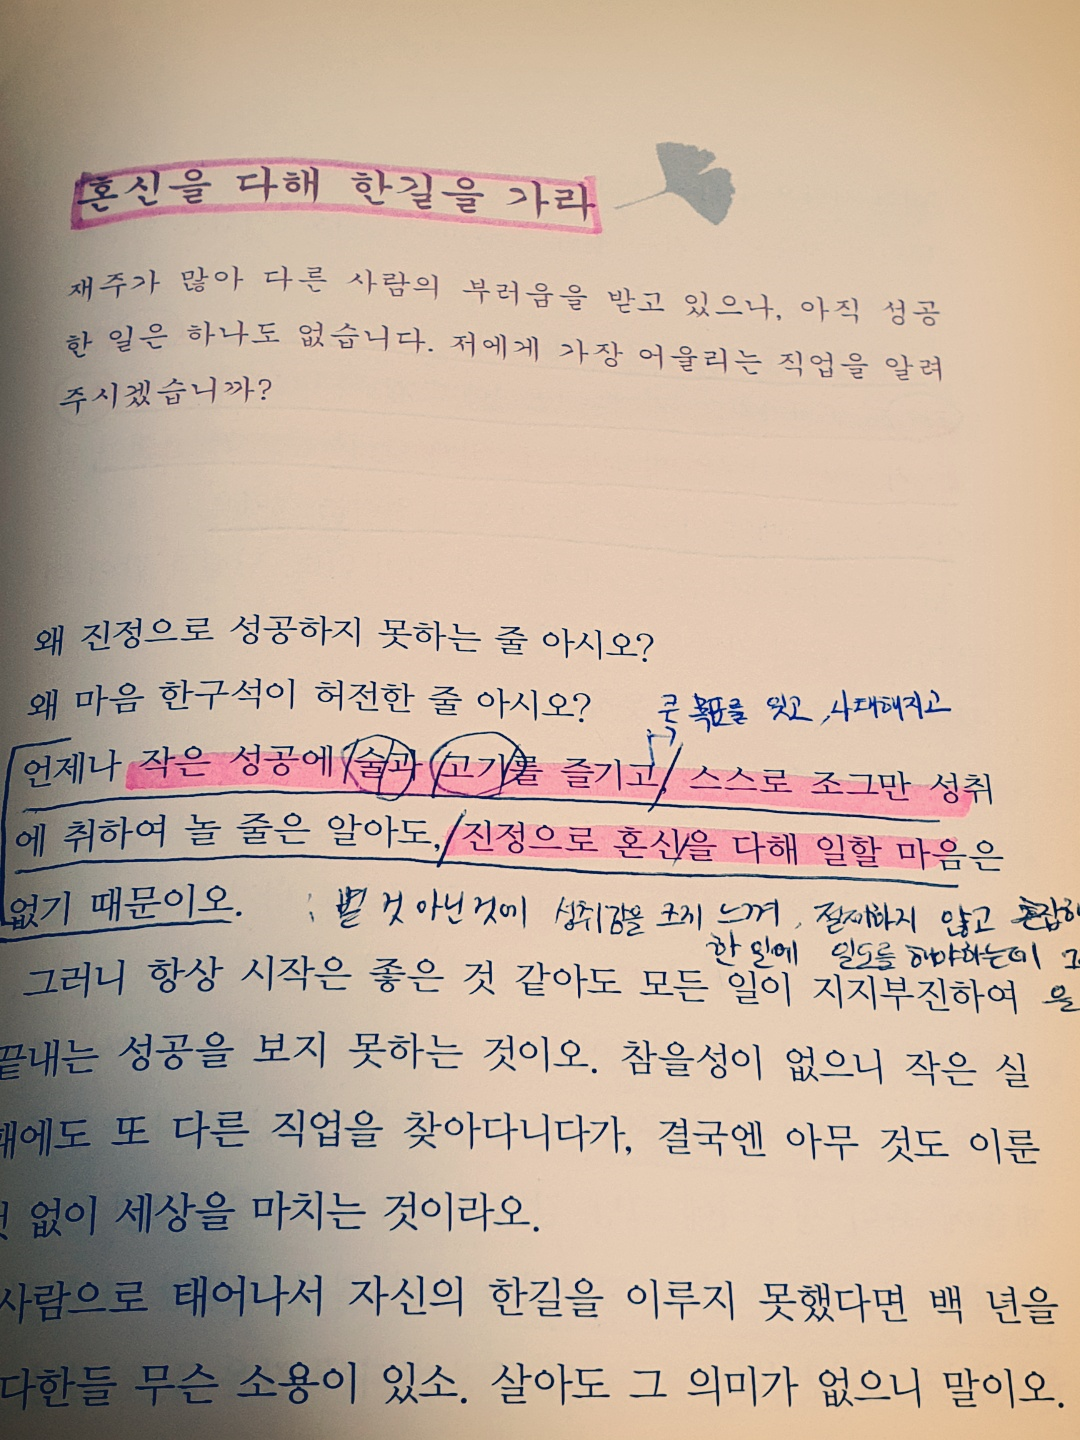 혼신을 다해 한길을 가라
재주가 많아 다른 사람의 부러움을 받고 있으나, 아직 성공
한 일은 하나도 없습니다. 저에게 가장 어울리는 직업을 알려
주시겠습니까?
왜 진정으로 성공하지 못하는 줄 아시오?
왜 마음 한구석이 허전한 줄 아시오?
큰 목표를 잊고, 나태해지고
언제나 작은 성공에 술과 고기를 즐기고, 스스로 조그만 성취
에 취하여 놀 줄은 알아도, 진정으로 혼신을 다해 일할 마음은
없기 때문이오.
: 별 것 아닌것에 성취감을 크게 느껴, 절제하지 않고
한 일에 일도를 해야하는데
그러니 항상 시작은 좋은 것 같아도 모든 일이 지지부진하여
끝내는 성공을 보지 못하는 것이오. 참을성이 없으니 작은 실
패에도 또 다른 직업을 찾아다니다가, 결국엔 아무 것도 이룬
없이 세상을 마치는 것이라오.
사람으로 태어나서 자신의 한길을 이루지 못했다면 백 년을
다한들 무슨 소용이 있소. 살아도 그 의미가 없으니 말이오.